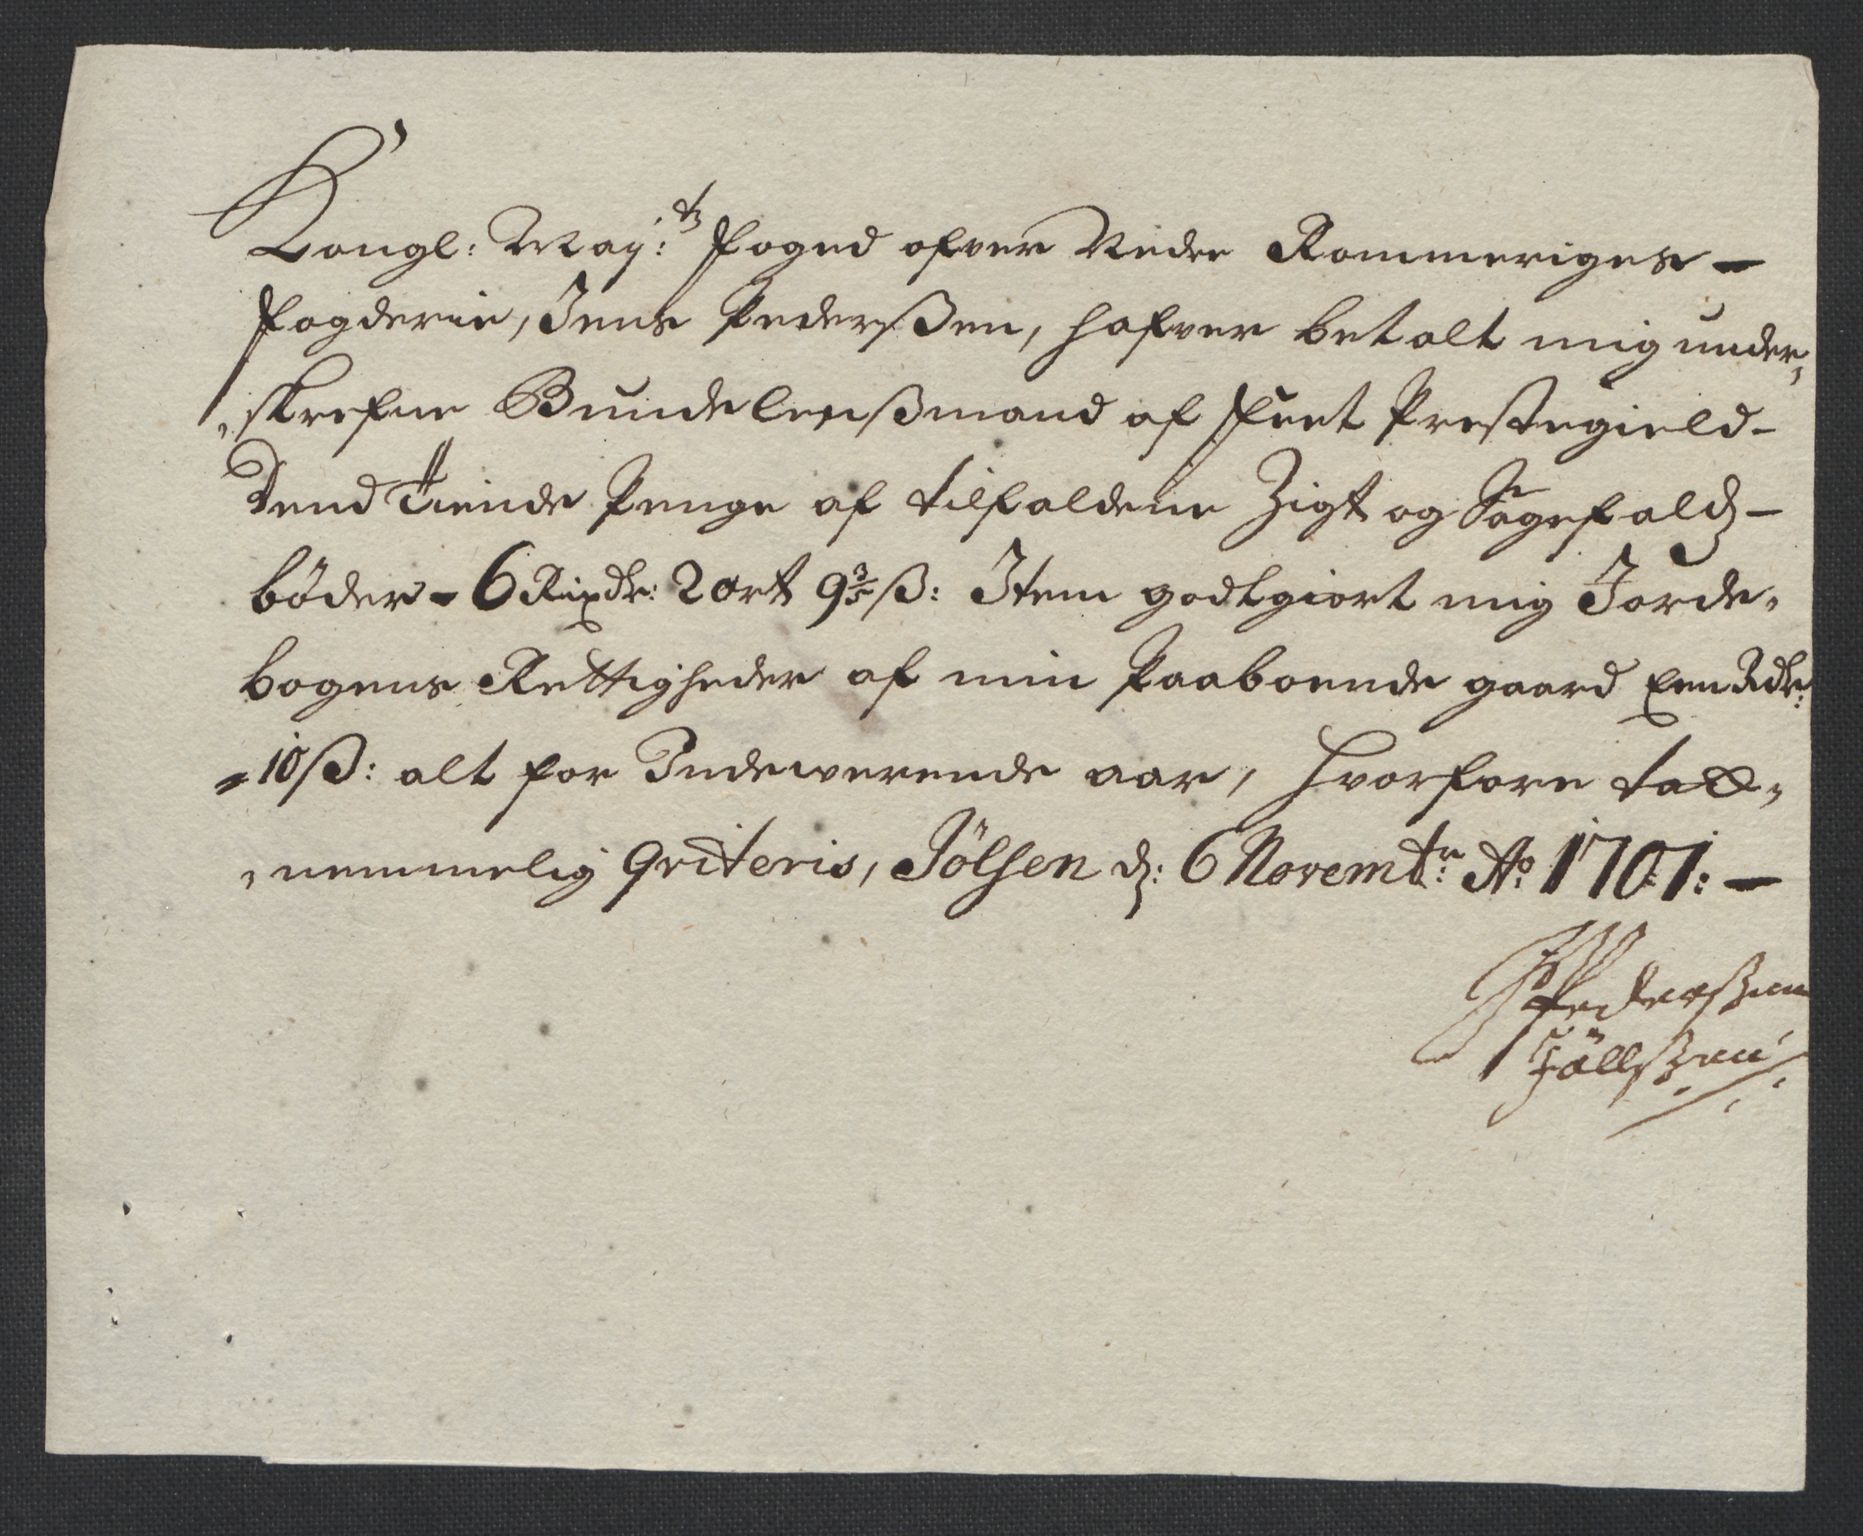 Kongl: May:tz foged ofver Nedre Rommeriges –
fogderie, Jens Pederßen, hafver betalt mig under„
„skrefne Bundelenßmand af feet Prestegield –
Dend Tiende Penge af tilfaldene Zigt og Sagefaldz –
bøder – 6 Rixdr: 2 ort 9 3/5 ß: Item godtgiort mig Jorde„
bogens Rettigheder af min Paaboende gaard Een Rdr:
„10 ß: alt for Indewerende aar, Hvorfore tack„
„nemmelig Qviteris, Jölsen d: 6 Novembr: Ao: 1701: –
Pederszen
Jöllszen